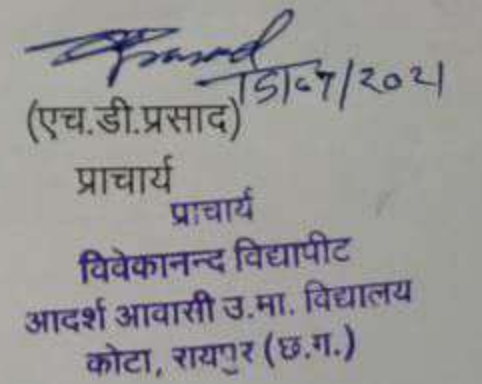 Prasad
15/07/2021
(एच.डी.प्रसाद)
प्राचार्य
प्राचार्य
विवेकानन्द विद्यापीट
आदर्श आवासी उ.मा. विद्यालय
कोटा, रायपुर (छ.ग.)